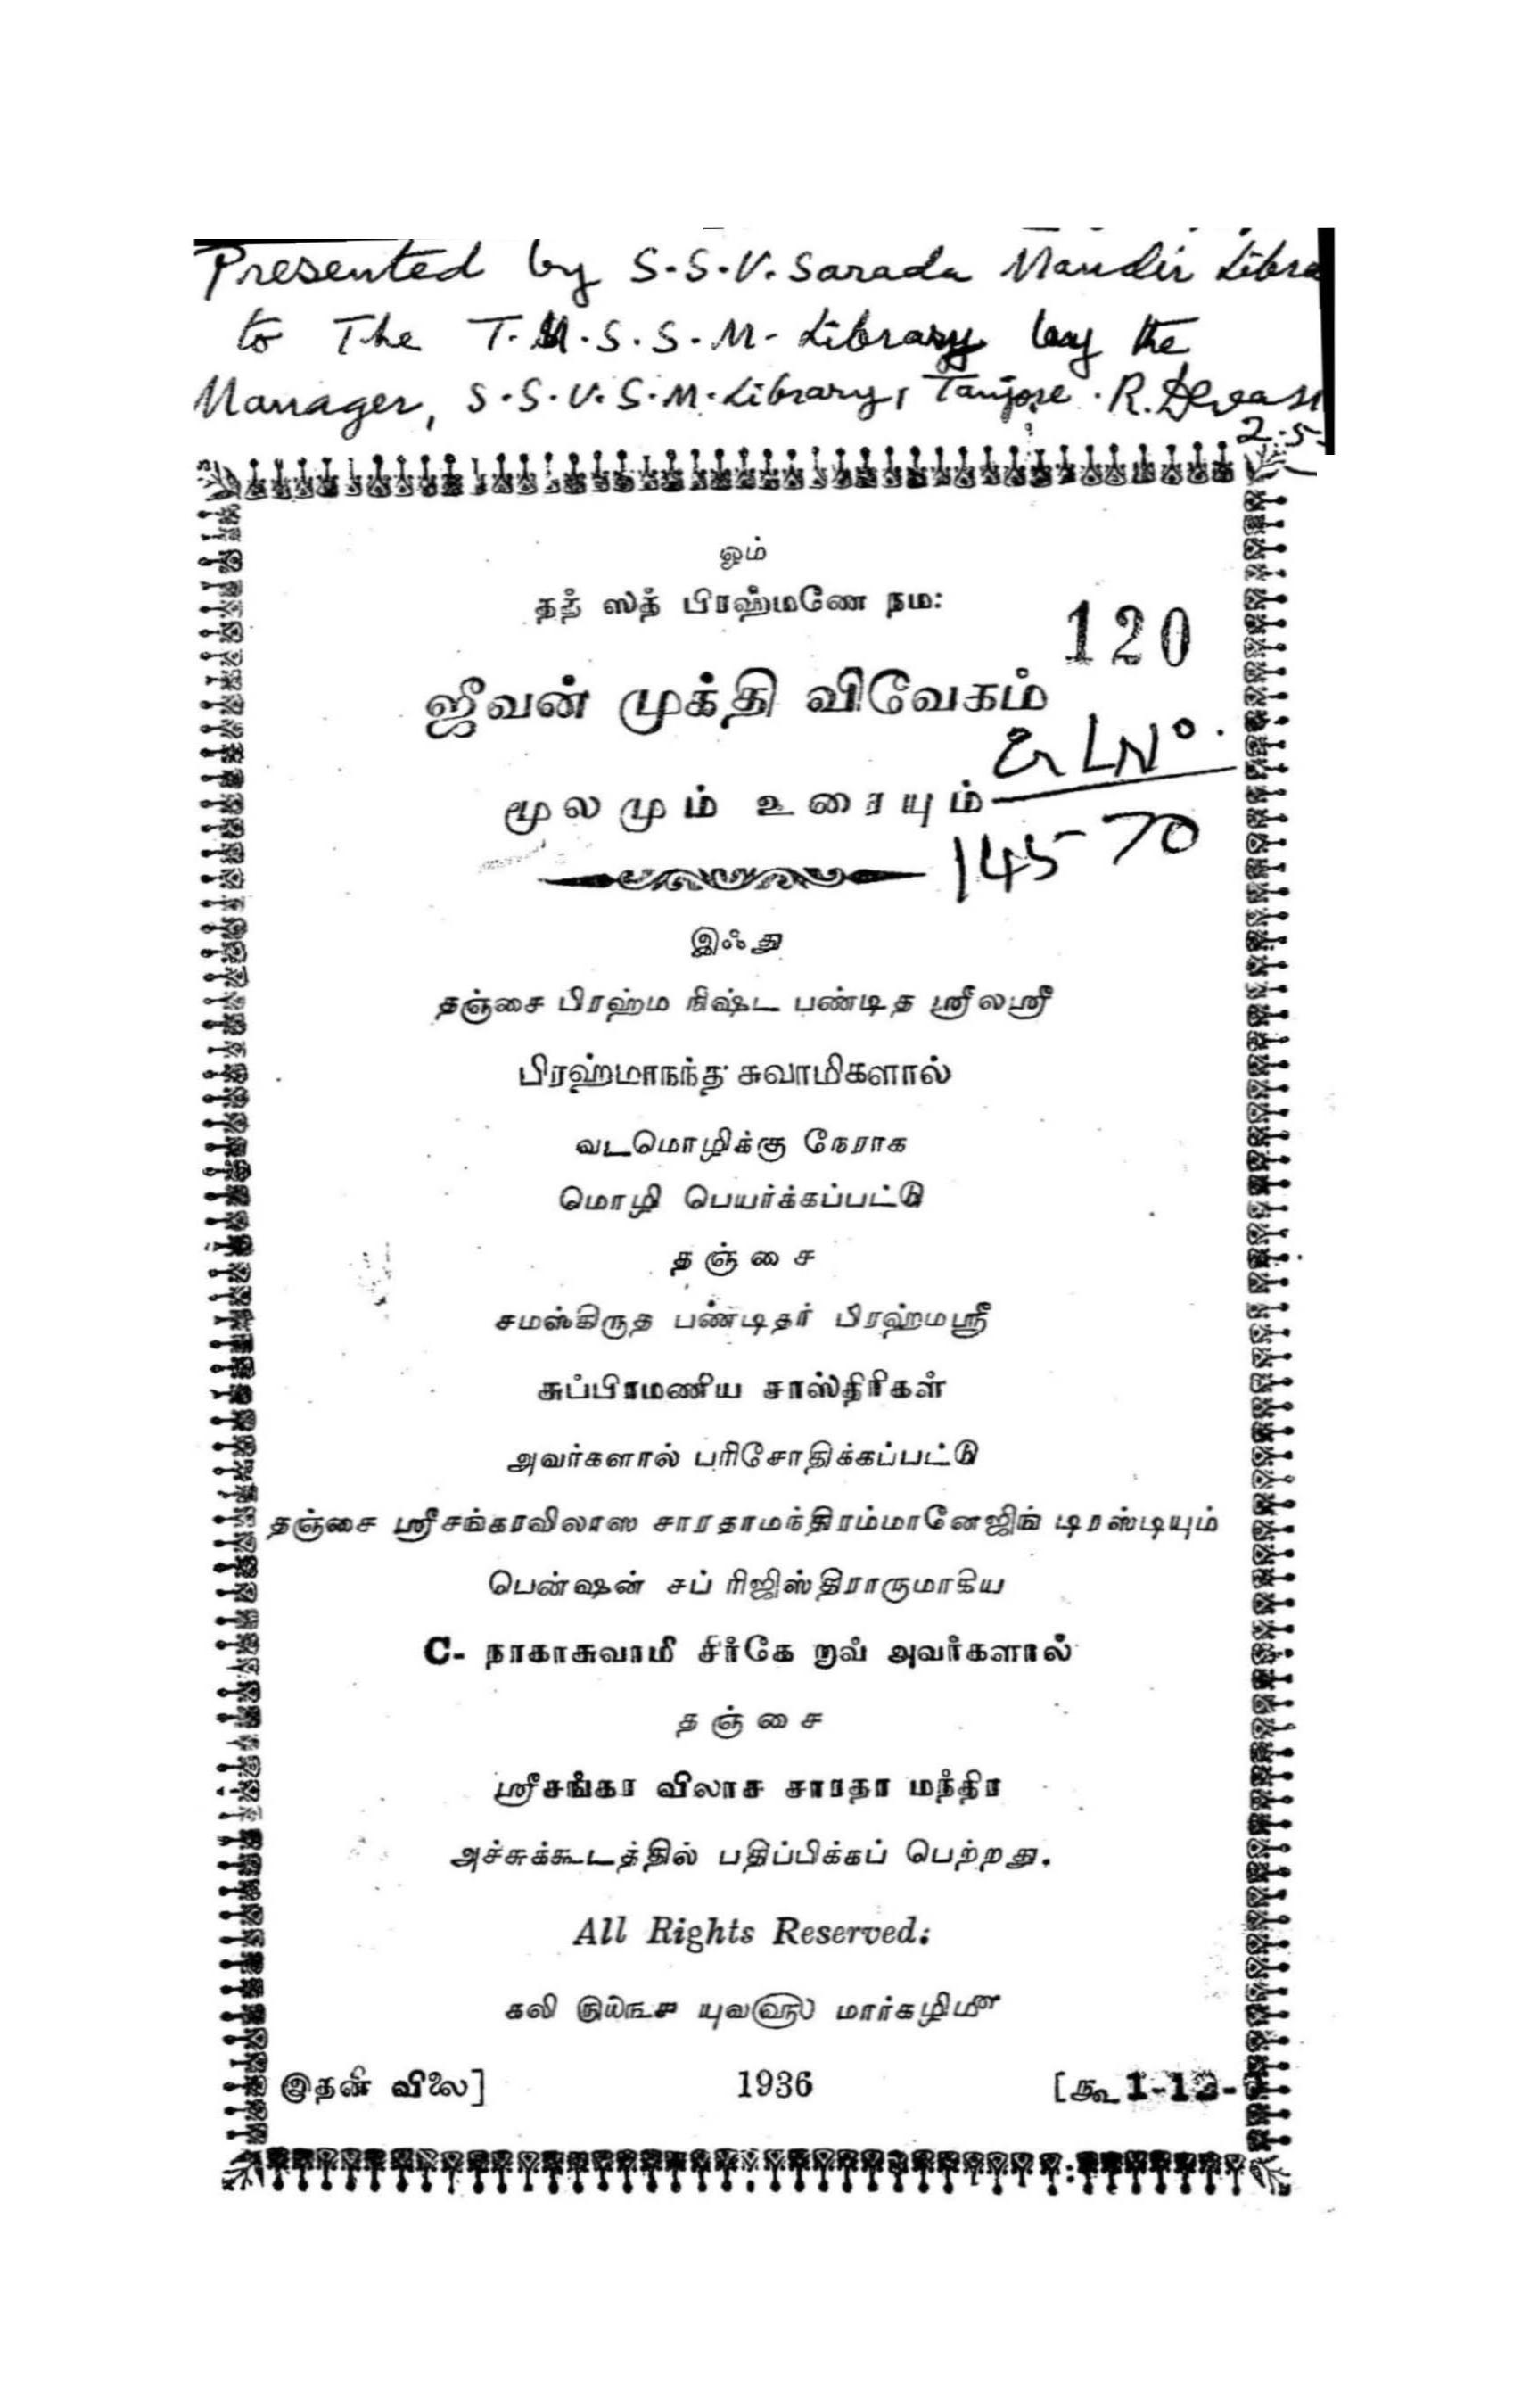 Presented by S.S.V. Sarada Mandir
to The T.M.S.S.M. Library by the
Manager, S.S.V.S.M. Library, Tanjore. R.
2.5
ஓம்
தத் ஸத் பிரஹ்மணே நம:
120
ஜீவன் முக்தி விவேகம்
மூலமும் உரையும்
145-70
இஃது
தஞ்சை பிரஹ்ம நிஷ்ட பண்டித ஸ்ரீலஸ்ரீ
பிரஹ்மாநந்த சுவாமிகளால்
வடமொழிக்கு நேராக
மொழி பெயர்க்கப்பட்டு
தஞ்சை
சமஸ்கிருத பண்டிதர் பிரஹ்மஸ்ரீ
சுப்பிரமணிய சாஸ்திரிகள்
அவர்களால் பரிசோதிக்கப்பட்டு
தஞ்சை ஸ்ரீசங்கரவிலாஸ சாரதாமந்திரம்மானேஜிங் டிரஸ்டியும்
பென்ஷன் சப் ரிஜிஸ்திராருமாகிய
C- நாகாசுவாமி சிர்கே றவ் அவர்களால்
தஞ்சை
ஸ்ரீசங்கர விலாச சாரதா மந்திர
அச்சுக்கூடத்தில் பதிப்பிக்கப் பெற்றது.
All Rights Reserved:
கலி யுவ௵ மார்கழி௴
இதன் விலை] 1936 [ரூ 1-12-